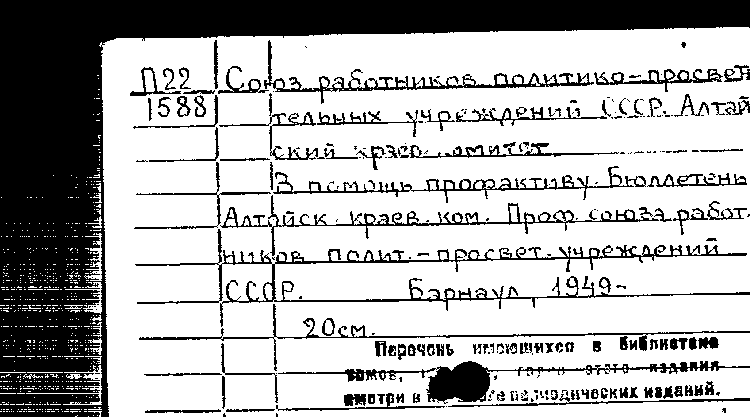 П22 Союз работников политико-просвет
1588 тельных учреждений СССР. Алтай
ский краев. омитет
В помощь профактиву. Бюллетень
Алтайск. краев. ком. Проф. союза работ.
ников полит.-просвет. учреждений
СССР. Барнаул, 1949-
20см.
Перечень имеющихся в библиотеке
томов, годов этого издания
смотри в периодических изданий.